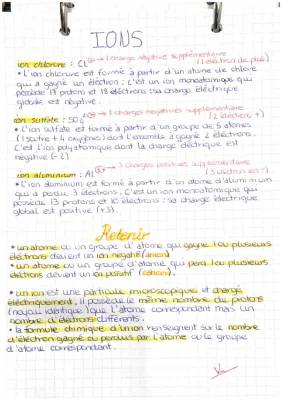 IONS
→ 1 charge négative supplémentaire
ion chlorure : CL⊖ (1 électron de plus)
• L'ion chlorure est formé à partir d'un atome de chlore
qui a gagné un électron : c'est un ion monoatomique qui
possède 17 protons et 18 électrons : sa charge électrique
globale est négative.
→ 2 charges négatives supplémentaires
ion sulfate : SO₄²⊖ (2 électrons +)
• L'ion sulfate est formé à partir d'un groupe de 5 atomes
(1 soufre + 4 oxygènes) dont l'ensemble à gagné 2 électrons.
C'est l'ion polyatomique dont la charge électrique est
négative (-2)
→ 3 charges positives supplémentaires
ion aluminium : AL³⊕ (3 électrons en -)
• L'ion aluminium est formé à partir d'un atome d'aluminium
qui a perdu 3 électrons. C'est un ion monoatomique qui
possède 13 protons et 10 électrons : sa charge électrique
global est positive (+3).
Retenir
• un atome ou un groupe d'atome qui gagne 1 ou plusieurs
électrons devient un ion négatif (anion)
• un atome ou un groupe d'atome qui perd 1 ou plusieurs
électrons devient un ion positif (cation).
• un ion est une particule microscopique et chargé
électriquement, il possède le même nombre de protons
(noyau identique) que l'atome correspondant mais un
nombre d'électrons différents.
• la formule chimique d'un ion renseignent sur le nombre
d'électron gagné ou perdus par l'atome ou le groupe
d'atome correspondant.